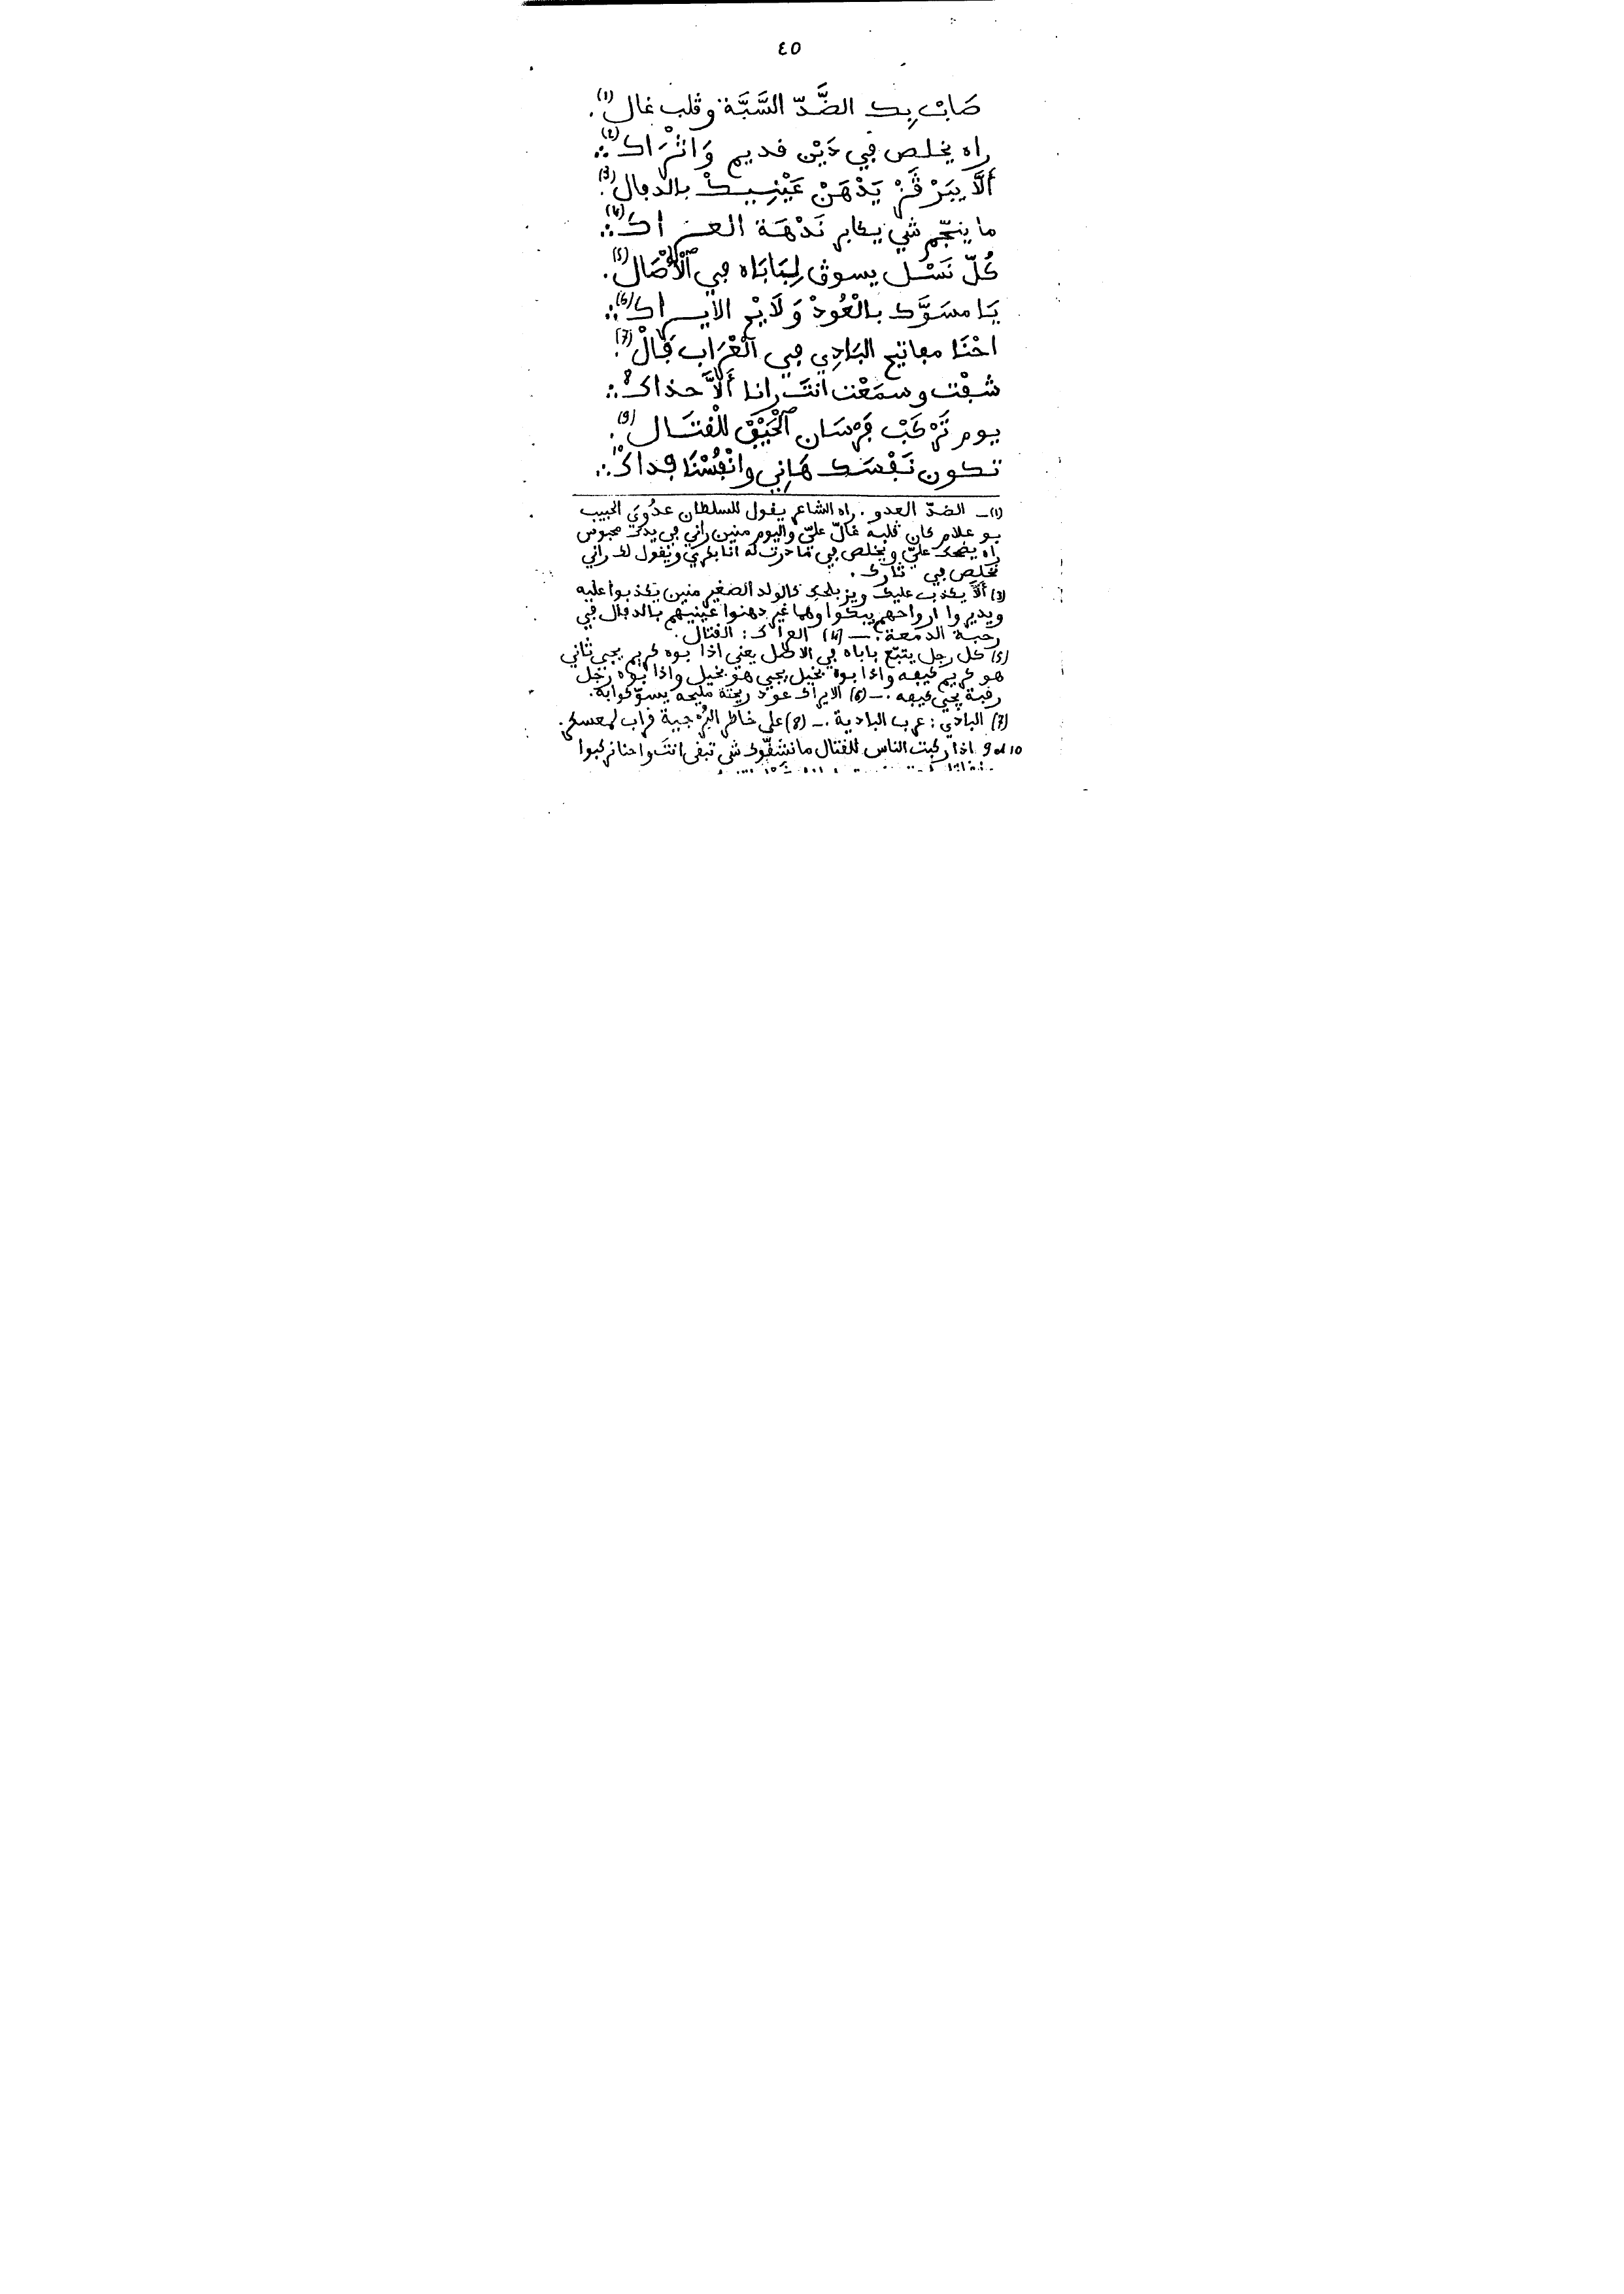 ٤٥
صَابْ بِك الضَّدّ السَّبَّة وڨلب غال (١).
راه يخلص ڢي دَيْن ڧديم وَاثْرَاك (٢)∴
أَلَّا يبَرْڨَزْ يَدْهَنْ عَيْنِيكْ بالدڢال (3).
ما ينجّم شي يكابر نَدْهَة العراك (4)∴
كُلّ نَسْل يسوڨ لِبَابَاه ڢي ٱلْأَصَال (5).
يَا مسَوَّك بالْعُودْ وَلَايْر الايراك (6)∴
احْنَا مڢاتيح البَادِي ڢي ٱلْڨْرَاب ڢَالْ (7).
شُڢْت وسمَعْت انتَ رانا أَلَّا حذاك 8∴
يوم تَرْكَبْ ڢَرْسَان ٱلْحَيْڨ للْڧتَال (9).
تكون نَڢْسَك هَانِي وانْڢُسْنَا ڢداكْ 10∴
(1)– الضدّ العدو. راه الشاعر يڧول للسلطان عدُوِّيَ الحبيب
بو علام كان ڨلبه غالّ عليّ واليوم منين راني ڢي يدك محبوس
راه يضحك عليّ ويخلص ڢي ما درت له انا بكري ونڧول لك راني
نخلص ڢي ثارك.
(3) ألّا يكذب عليك ويزبلحك كالولد الصغير منين يكذبوا عليه
ويديروا ارواحهم يبكوا وهما غير دهنوا عينيهم بالدڢال ڢي
رحبة الدمعة. – (4) العراك: الڧتال.
(5) كل رجل يتبّع باباه ڢي الاصل يعني اذا بوه كريم يجي ثاني
هو كريم كيڢه واذا بوه بخيل يجي هو بخيل واذا بوه رجل
رڧبة يجي كيڢه. – (6) الايراك عود ريحته مليحه يسوّكوا به.
(7) البادي: عرب البادية. – (8) على خاطر البُرْجية ڧراب لمعسكر.
9 et 10 اذا ركبت الناس للڧتال ما نشڧّوك شي تبڧى انتَ واحنا نركبوا